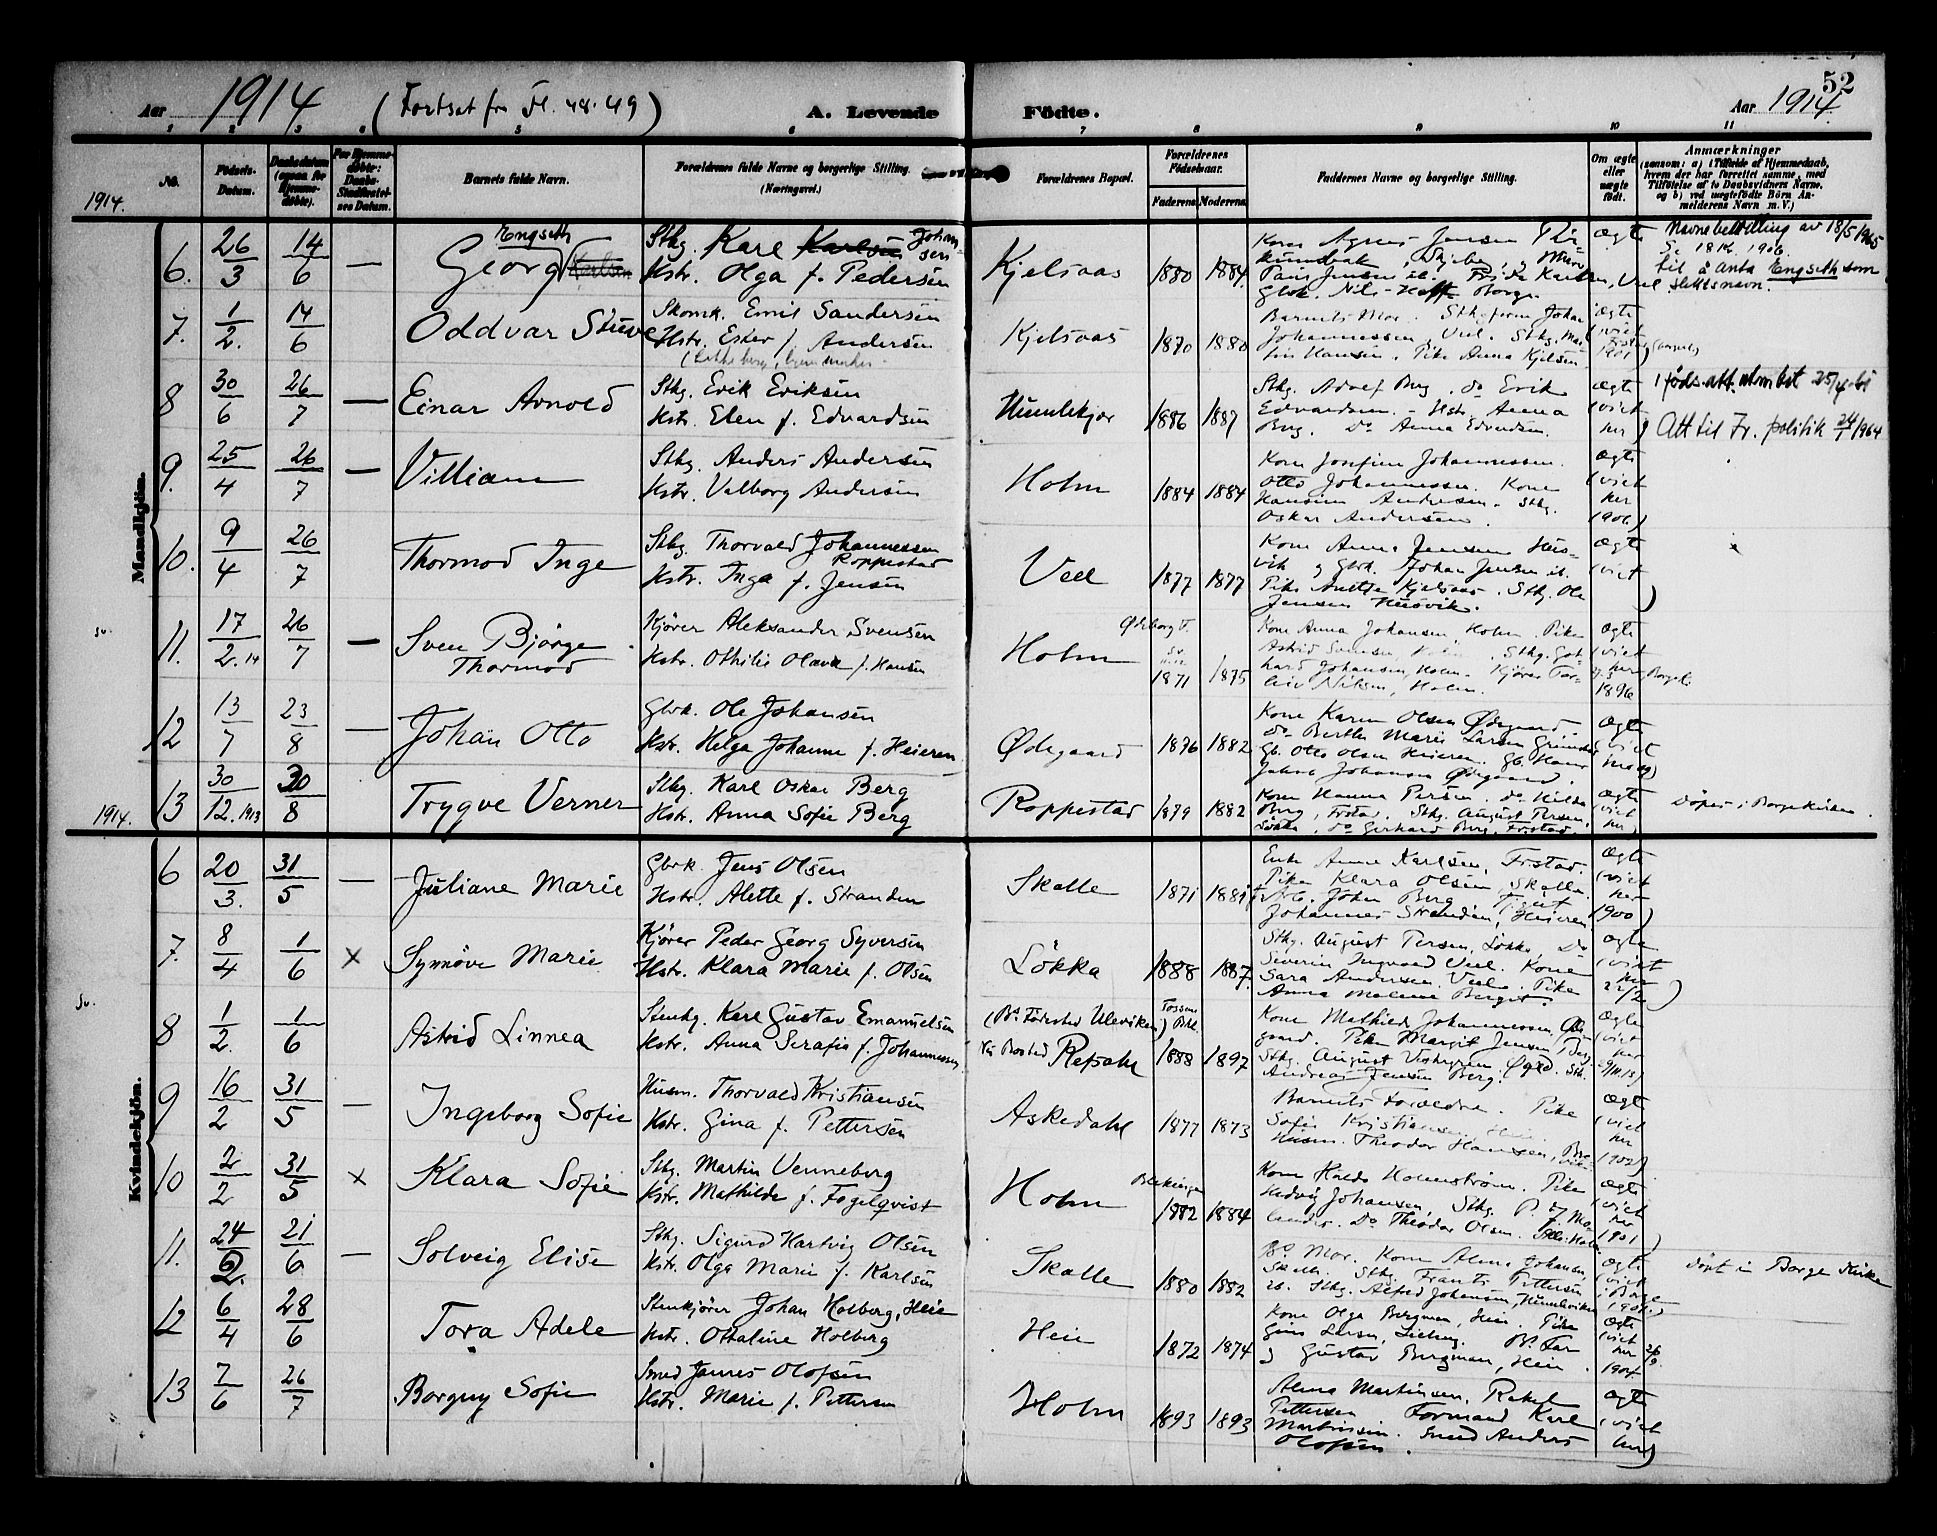 52
Aar 1914 (Fortsat fra Fl. 48-49) A. Levende Födte. Aar 1914
1 2 3 4 5 6 7 8 9 10 11
1914.
No.
Födsels-
Datum.
Daabsdatum
(ogsaa for
Hjemme-
döbte).
For Hjemme-
döbte:
Daabs-
Stadfæstel-
ses Datum.
Barnets fulde Navn.
Forældrenes fulde Navne og borgerlige Stilling.
(Næringsvei.)
Forældrenes Bopæl.
Forældrenes
Födselsaar.
Faderens Moderens
Faddernes Navne og borgerlige Stilling.
Om ægte
eller
uægte
født.
Anmærkninger
(saasom: a) i Tilfælde af Hjemmedaab,
hvem der har forrettet samme, med
Tilföielse af to Daabsvidners Navne,
og b) ved uægtefödte Börn An-
melderens Navn m. V.)
Mandkjön.
6. 26/3 14/6 — Georg Karlsen Engseth
Sthg. Karl Karlsen Johansen
Hstr. Olga f. Pedersen
Kjelsaas 1880 1884
Kone Agnes Jensen
ægte
Navnebevilling av 18/5 1965
til å anta Engseth som
slektsnavn.
7. 1/2. 14/6 Oddvar Stuve
Skomk. Emil Sandersen
Hstr. Ester f. Andersen
Kjelsaas 1870 1880
Barnets Mor. Johan
Johannessen, Veel. Sthg. Mar
tin Hansen. Pike Anna Kjelsen
ægte
(viet
1901
8 30/6 26/7 — Einar Arnold
Sthg. Erik Eriksen
Hstr. Elen f. Edvardsen
Hunnekjær 1886 1887
Sthg. Adolf Berg. do Erik
Edvardsen. - Hstr. Anna
Berg. Do Anna Edvardsen.
ægte
(viet
her)
1 føds.att. utm.bet 25/4-61
Att til Fr. politik 24/1 1964
9. 25/4 26/7 — Villiam
Sthg. Anders Andersen
Hstr. Valborg Andersen
Holm 1884 1884
Kone Josefine Johannessen.
Otto Johannessen. Kone
Hansine Andersen. Sthg.
Oskar Andersen.
ægte
(viet
her
1906)
10. 9/4 26/7 Thormod Inge
Sthg. Thorvald Johannessen
Roppestad
Hstr. Inga f. Jensen
Veel 1877 1877
Kone Anna Jensen Hus-
vik og Gbrk. Johan Jensen ib.
Pike Anette Kjelsaas. Sthg. Ole
Jensen Husvik.
ægte
(viet
)
sv.
11. 17/2.14 26/7 — Sven Bjørge
Thormod
Kjører Aleksander Svensen
Hstr. Othilie Olava f. Hansen
Holm 1871 1875
Kone Anna Johansen, Holm. Pike
Astrid Svensen. Sthg. Got-
hard Johansen, Holm. Kjører Tor-
leiv Nilsen, Holm.
ægte
(viet
1896
12 13/7 23/8 — Johan Otto
Gbrk. Ole Johansen
Hstr. Helga Johanne f. Heieren
Ødegaard 1876 1882
Kone Karen Olsen Ødegaard.
do Berthe Marie Larsen
Gb. Otto Olsen Heieren. Gb. Hans
Jakob Johansen Ødegaard.
ægte
(viet
1914. 13 30/12.1913 30/8 Trygve Verner
Sthg. Karl Oskar Berg
Hstr. Anna Sofie Berg
Roppestad 1879 1882
Kone Hanna Persen. do Hilda
Berg, Frstad. Sthg. August Persen,
Løkka, do Gerhard Berg, Frstad.
ægte
(viet
her)
Döpt i Borge kirken.
Kvindekjön.
6 20/3. 31/5 — Juliane Marie
Gbrk. Jens Olsen
Hstr. Alette f. Stranden
Skalle 1871 1881
Enke Anna Karlsen, Frstad.
Pike Klara Olsen, Skalle
Arb. Johan Berg
Johannes Stranden, Heieren
ægte
(viet
her
1900)
7. 8/4 1/6 x Synnøve Marie
Kjører Peder Georg Syversen
Hstr. Klara Marie f. Olsen
Løkka 1888 1887.
Sthg. August Persen, Løkka, Do
Severin Ingvald Veel. Kone
Sara Andersen, Veel. Pike
Anna Malene Berget.
ægte
(viet
her
)
Sv.
8 1/2. 1/6 Astrid Linnea
Stenhg. Karl Gustav Emanuelsen
Hstr. Anna Serafia f. Johannessen
(Bs Fødested Uleviken)
Nu Bosted Repdahl 1888 1897
Kone Mathilde Johannessen, Øde-
gaard. Pike Margit Jensen, Berg
Sthg. August Vestgren, Øgrd. Sth.
Andreas Jensen Berg.
ægte
(viet
her
9 16/2 31/5 — Ingeborg Sofie
Husm. Thorvald Kristiansen
Hstr. Gina f. Pettersen
Askedahl 1877 1873
Barnets Forældre. Pike
Sofie Kristiansen, Heie.
Husm. Theodor Hansen,
ægte
(viet
her
1902)
10 2/2 31/5 x Klara Sofie
Sthg. Martin Venneberg
Hstr. Mathilde f. Fogelqvist
Holm Blekinge 1882 1884
Kone Hulda Holmstrøm. Pike
Hedvig Johansen, Sthg.
Do Theodor Olsen.
ægte
(viet
her
1901)
11. 24/2. 21/6 — Solveig Elise
Sthg. Sigurd Hartvig Olsen
Hstr. Olga Marie f. Karlsen
Skalle 1880 1882
Bs Mor. Kone Alma Johansen,
Skalle. Sthg. Frants Pettersen
ib. Sthg. Alfred Johansen,
ægte
(viet
i Borge
Døpt i Borge Kirke
12 6/4 28/6 Tora Adele
Stenkjører Johan Holberg, Heie
Hstr. Ottaline Holberg
Heie 1872 1874
Kone Olga Bergman, Heie. Pike
Gina Larsen, Bs Far
og Gustav Bergman, Heie.
ægte
(viet
her
1904
13 7/6 26/7 Borgny Sofie
Smed James Olofsen
Hstr. Marie f. Pettersen
Holm 1893 1893
Alma Martinsen. Rakel
Pettersen Formand Karl
Martinsen. Smed Anders
Olofsen.
ægte
(viet
her)